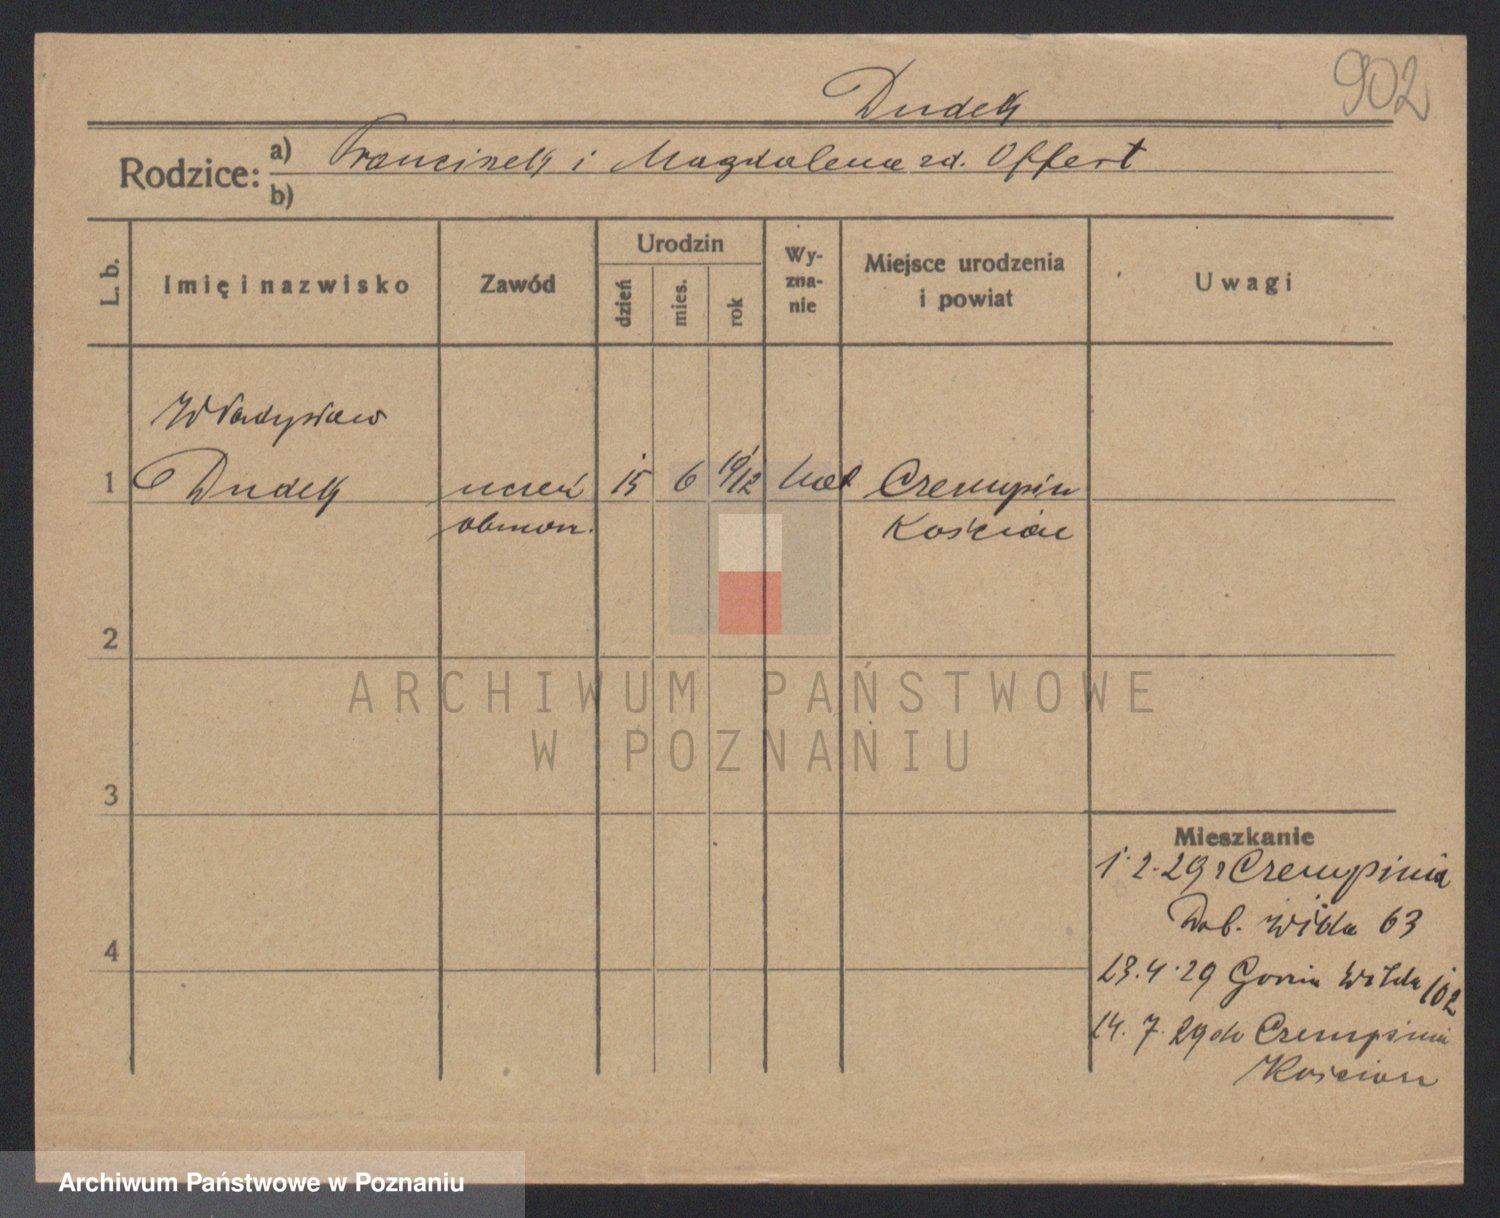 902
Dudek
Rodzice: a) Franciszek i Magdalena zd. Offert
b)
L. b.
Imię i nazwisko
Zawód
Urodzin
dzień
mies.
rok
Wy-
zna-
nie
Miejsce urodzenia
i powiat
Uwagi
Władysław
1 Dudek uczeń 15 6 1912 kat Czempiń
Kościan
2
3
4
ARCHIWUM PAŃSTWOWE
W POZNANIU
Mieszkanie
1.2.29 z Czempinia
Dol. Wilda 63
23.4.29 Górna Wilda 102
14.7.29 do Czempinia
Kościan
Archiwum Państwowe w Poznaniu